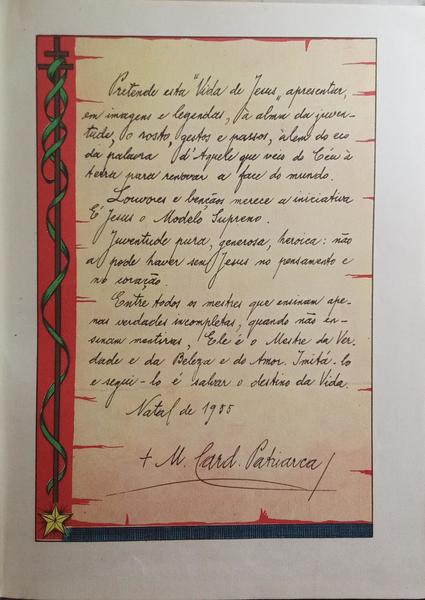 Pretende esta "Vida de Jesus" apresentar,
em imagens e legendas, à alma da juven-
tude, o rosto, gestos e passos, àlém do eco
da palavra d'Aquele que veio do Céu à
terra para renovar a face do mundo.
Louvores e bençãos merece a iniciativa
É Jesus o Modelo Supremo.
Juventude pura, generosa, heroica: não
a pode haver sem Jesus no pensamento e
no coração.
Entre todos os mestres que ensinam ape-
nas verdades incompletas, quando não en-
sinam mentiras, Ele é o Mestre da Ver-
dade e da Beleza e do Amor. Imitá-lo
e segui-lo é salvar o destino da Vida.
Natal de 1955
+ M. Card. Patriarca